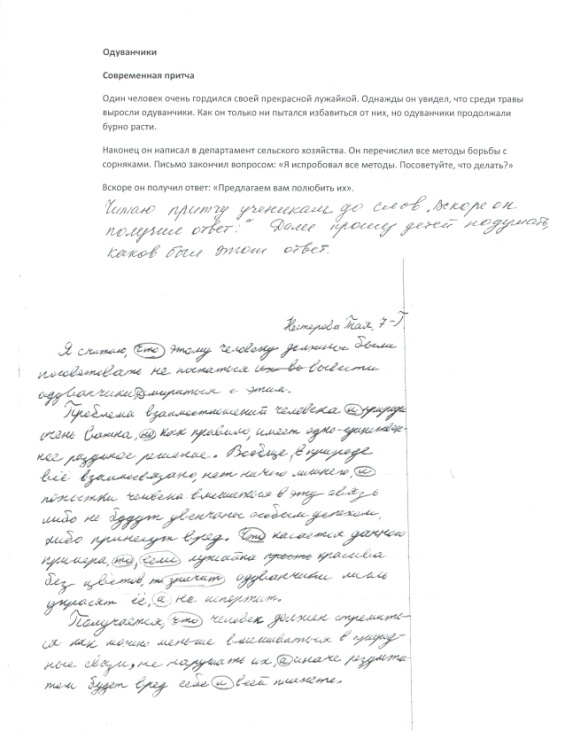 Одуванчики
Современная притча
Один человек очень гордился своей прекрасной лужайкой. Однажды он увидел, что среди травы
выросли одуванчики. Как он только ни пытался избавиться от них, но одуванчики продолжали
бурно расти.
Наконец он написал в департамент сельского хозяйства. Он перечислил все методы борьбы с
сорняками. Письмо закончил вопросом: «Я испробовал все методы. Посоветуйте, что делать?»
Вскоре он получил ответ: «Предлагаем вам полюбить их».
Читаю притчу ученикам до слов „Вскоре он
получил ответ:" Далее прошу детей подумать,
каков был этот ответ.
Нестерова Тая, 7-Г
Я считаю, что этому человеку должны были
посоветовать не пытаться вывести
одуванчики, а мириться с этим.
Проблема взаимоотношений человека и природы
очень важна, но как правило, имеет одно-единствен-
ное разумное решение. Вообще, в природе
всё взаимосвязано, нет ничего лишнего, и
попытки человека вмешаться в эту связь
либо не будут увенчаны особым успехом,
либо принесут вред. Что касается данного
примера, то, если лужайка просто красива
без цветов, то значит одуванчики лишь
украсят её, а не испортят.
Получается, что человек должен стремить-
ся как можно меньше вмешиваться в природ-
ные связи, не нарушать их, а иначе результа-
том будет вред себе и всей планете.